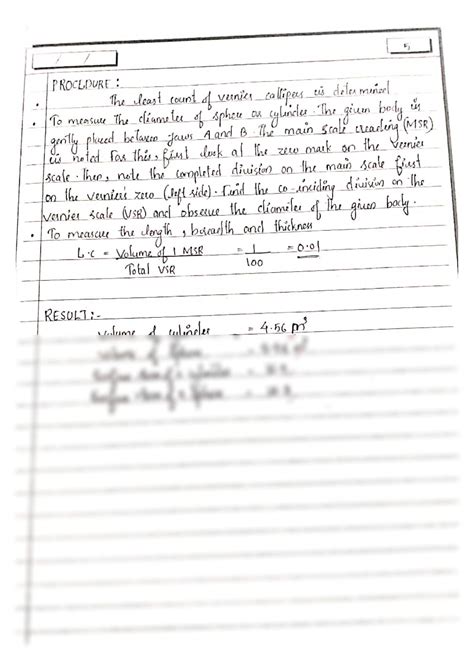 PROCEDURE :
The least count of vernier callipers is determined
• To measure the diameter of sphere or cylinder. The given body is
gently placed between jaws A and B. The main scale reading (MSR)
is noted For this, first look at the zero mark on the vernier
scale. then, note the completed division on the main scale first
on the vernier's zero (left side). Find the co-insiding division on the
vernier scale (VSR) and observe the diameter of the given body.
• To measure the length, breadth and thickness
L.C = Volume of 1 MSR / Total VSR = 1 / 100 = 0.01
RESULT:-
volume of cylinder = 4.56 m³